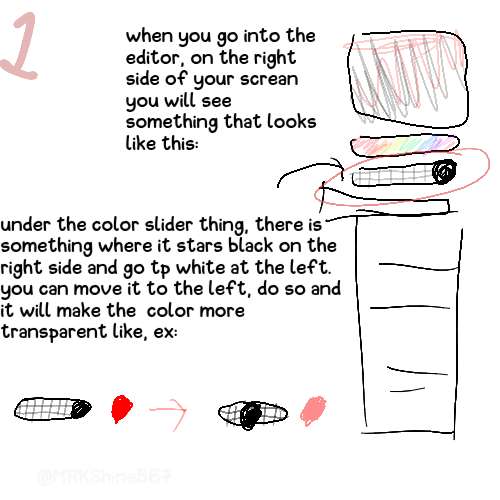 1
when you go into the
editor, on the right
side of your screan
you will see
something that looks
like this:
under the color slider thing, there is
something where it stars black on the
right side and go tp white at the left.
you can move it to the left, do so and
it will make the color more
transparent like, ex: